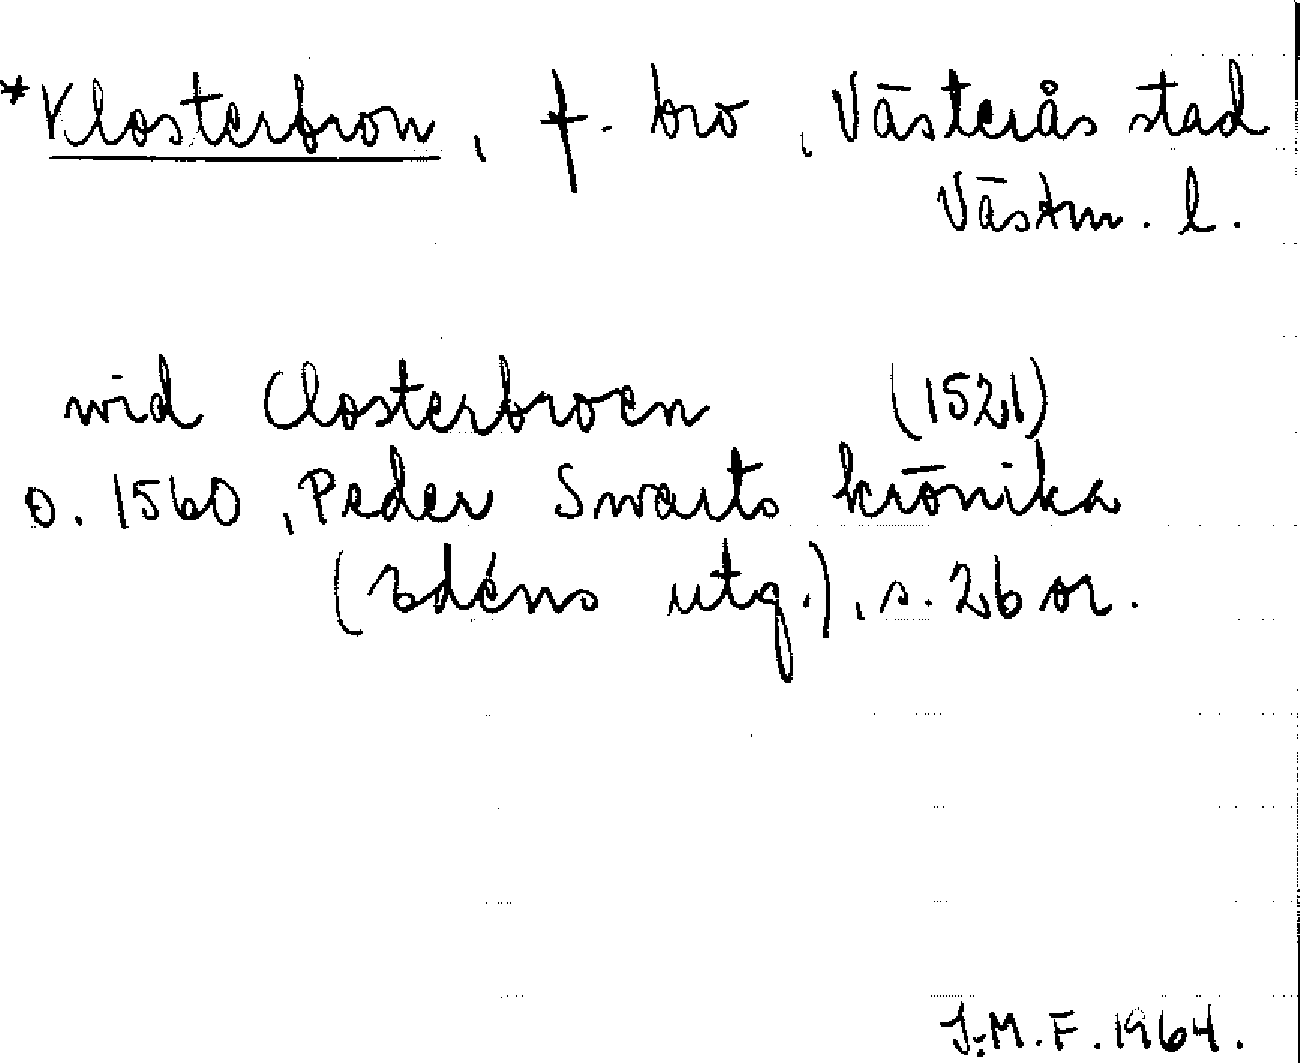 *Klosterbron, f. bro, Västerås stad
Västm. l.
wid Closterbroen (1521)
o. 1560, Peder Swarts krönika
(Edéns utg.), s. 26 or.
J:M.F. 1964.